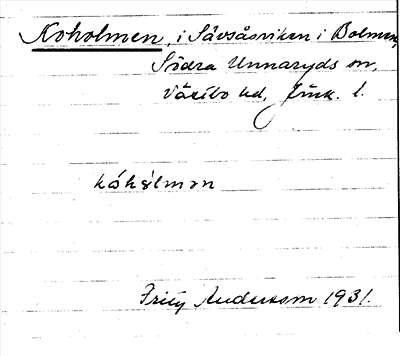 Koholmen, i Sävsåsviken i Bolmen,
Södra Unnaryds sn,
Västbo hd, Jönk. l.
kóhólmən
Fritz Andersson 1931.